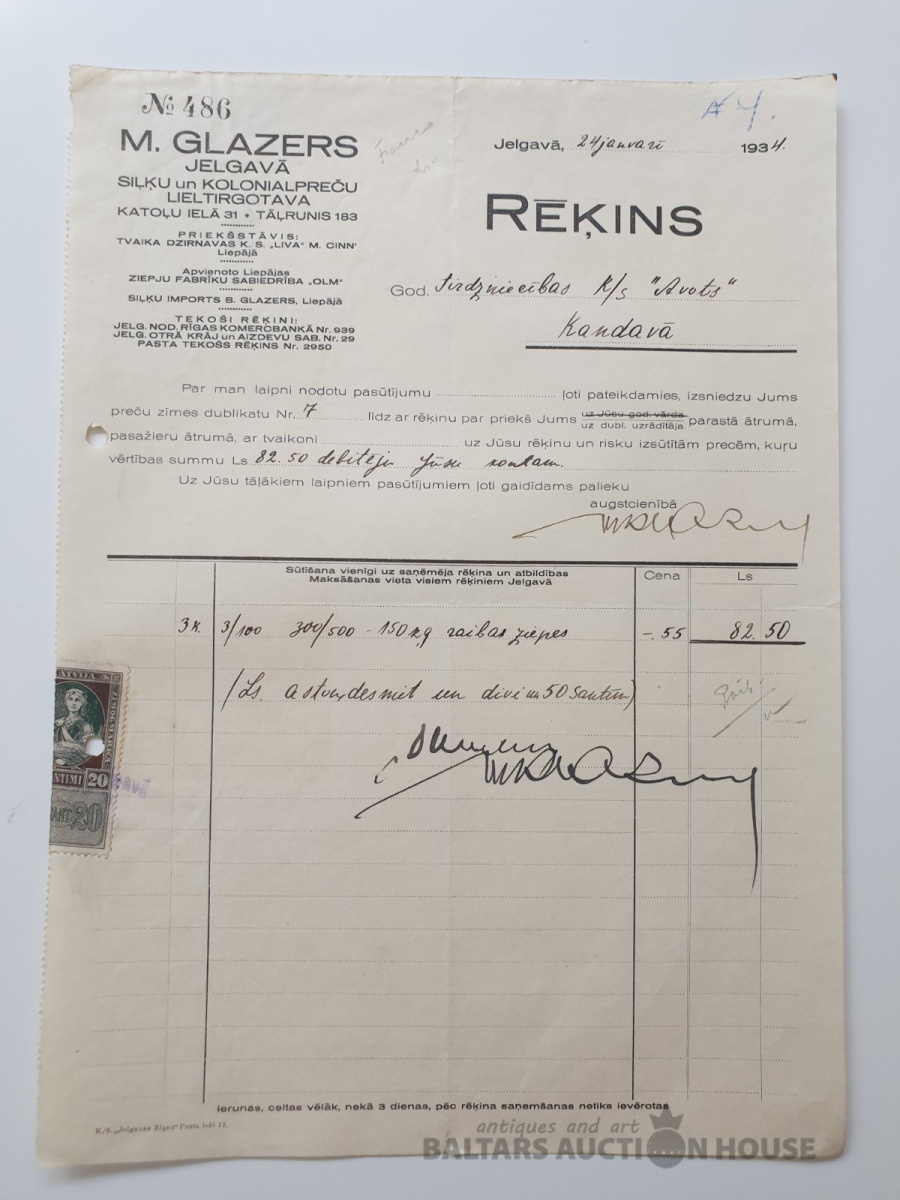 № 486
M. GLAZERS
JELGAVĀ
SIĻĶU un KOLONIALPREČU
LIELTIRGOTAVA
KATOĻU IELĀ 31 • TĀĻRUNIS 183
PRIEKŠSTĀVIS:
TVAIKA DZIRNAVAS K. S. „LIVA" M. CINN'
Liepājā
Apvienoto Liepājas
ZIEPJU FABRĪKU SABIEDRĪBA „OLM"
SIĻĶU IMPORTS B. GLAZERS, Liepājā
TEKOŠI RĒĶINI:
JELG. NOD. RĪGAS KOMERCBANKĀ Nr. 939
JELG. OTRĀ KRĀJ un AIZDEVU SAB. Nr. 29
PASTA TEKOŠS RĒĶINS Nr. 2950
Jelgavā, 24 janvarī 1934.
RĒĶINS
God. Tirdzniecības K/s "Avots"
Kandavā
Par man laipni nodotu pasūtījumu ļoti pateikdamies, izsniedzu Jums
preču zīmes dublikatu Nr. 7 līdz ar rēķinu par priekš Jums uz Jūsu god. vārda
uz dubl. uzrādītāja parastā ātrumā,
pasažieru ātrumā, ar tvaikoni uz Jūsu rēķinu un risku izsūtītām precēm, kuŗu
vērtības summu Ls 82.50 debitēju Jūsu kontam.
Uz Jūsu tāļākiem laipniem pasūtījumiem ļoti gaidīdams palieku
augstcienībā
Sūtīšana vienīgi uz saņēmēja rēķina un atbildības
Maksāšanas vieta visiem rēķiniem Jelgavā
Cena
Ls
3 k. 3/100 300/500 - 150 kg raibas ziepes -.55 82.50
(Ls. astoņdesmit un divi un 50 santim)
LATVIJA
20
20
Ierunas, celtas vēlāk, nekā 3 dienas, pēc rēķina saņemšanas netiks ievērotas
K/S. „Jelgavas Ziņas" Pasta ielā 12.
antiques and art
BALTARS AUCTION HOUSE